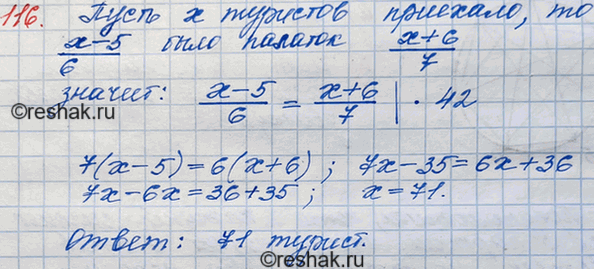 116. Пусть x туристов приехало, то
(x-5)/6 было палаток (x+6)/7
©reshak.ru
значит: (x-5)/6 = (x+6)/7 | · 42
7(x-5)=6(x+6); 7x-35=6x+36
7x-6x=36+35; x=71.
Ответ: 71 турист.
©reshak.ru